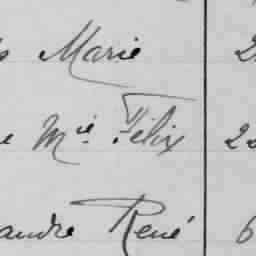 Marie 2
e Mie Félix 22
andre René 6